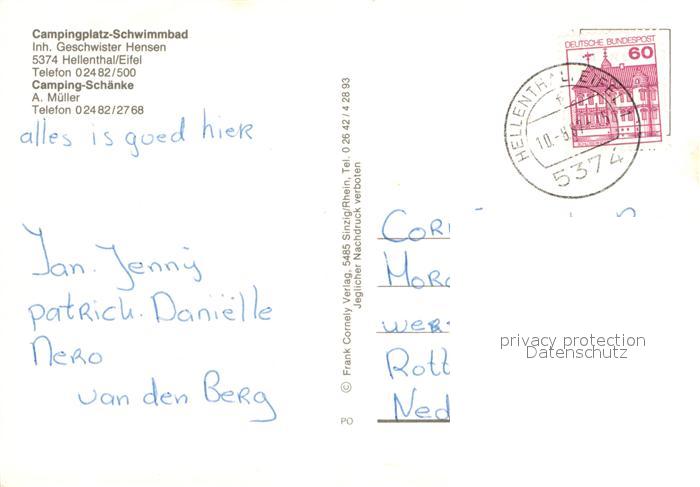 Campingplatz-Schwimmbad
Inh. Geschwister Hensen
5374 Hellenthal/Eifel
Telefon 02482/500
Camping-Schänke
A. Müller
Telefon 02482/2768
alles is goed hier
Jan. Jenny
patrick. Daniëlle
Nero
van den Berg
© Frank Cornely Verlag, 5485 Sinzig/Rhein, Tel. 0 26 42 / 4 28 93
Jeglicher Nachdruck verboten
PO
DEUTSCHE BUNDESPOST
60
HELLENTHAL, EIFEL
5374
Cor
wer
Rott
Ned
privacy protection
Datenschutz